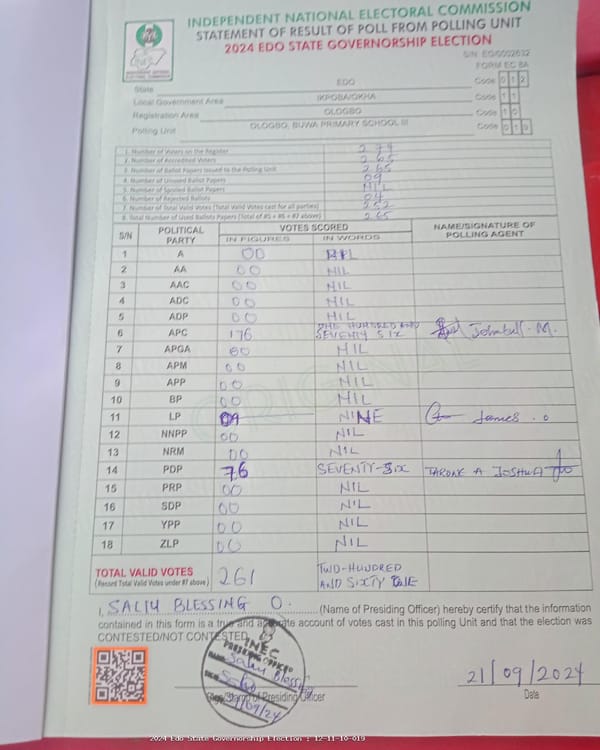 INDEPENDENT NATIONAL ELECTORAL COMMISSION
STATEMENT OF RESULT OF POLL FROM POLLING UNIT
2024 EDO STATE GOVERNORSHIP ELECTION
FORM EC 8A
State EDO Code 0 1 2
Local Government Area IKPOBA/OKHA Code 1 1
Registration Area OLOGBO Code 1 0
Polling Unit OLOGBO, BUWA PRIMARY SCHOOL III Code 0 1 9
1. Number of Voters on the Register 279
2. Number of Accredited Voters 265
3. Number of Ballot Papers Issued to the Polling Unit
4. Number of Unused Ballot Papers 09
5. Number of Spoiled Ballot Papers NIL
6. Number of Rejected Ballots 04
7. Number of Total Valid Votes (Total Valid Votes cast for all parties)
8. Total Number of Used Ballots Papers (Total of #5 + #6 + #7 above) 265
S/N POLITICAL PARTY VOTES SCORED NAME/SIGNATURE OF POLLING AGENT
IN FIGURES IN WORDS
1 A 00
2 AA 00 NIL
3 AAC 00 NIL
4 ADC 00 NIL
5 ADP 00 NIL
6 APC 176 ONE HUNDRED AND SEVENTY SIX Johnbull . M.
7 APGA 00 NIL
8 APM 00 NIL
9 APP 00 NIL
10 BP 00 NIL
11 LP 09 NINE James . o
12 NNPP 00 NIL
13 NRM 00 NIL
14 PDP 76 SEVENTY-SIX A JOSHUA
15 PRP 00 NIL
16 SDP 00 NIL
17 YPP 00 NIL
18 ZLP 00 NIL
TOTAL VALID VOTES 261 TWO-HUNDRED
(Record Total Valid Votes under #7 above) AND SIXTY ONE
I, SALIU BLESSING O. (Name of Presiding Officer) hereby certify that the information
contained in this form is a true and accurate account of votes cast in this polling Unit and that the election was
CONTESTED/NOT CONTESTED
INEC
PRESIDING OFFICER
Saliu Blessing
21/09/24
Sign/Stamp of Presiding Officer
21/09/2024
Date
2024 Edo State Governorship Election : 12-11-10-019